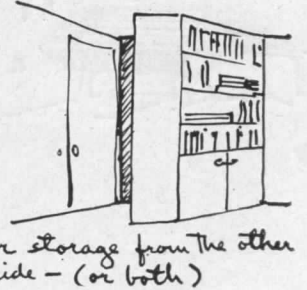 r storage from the other
ide – (or both)